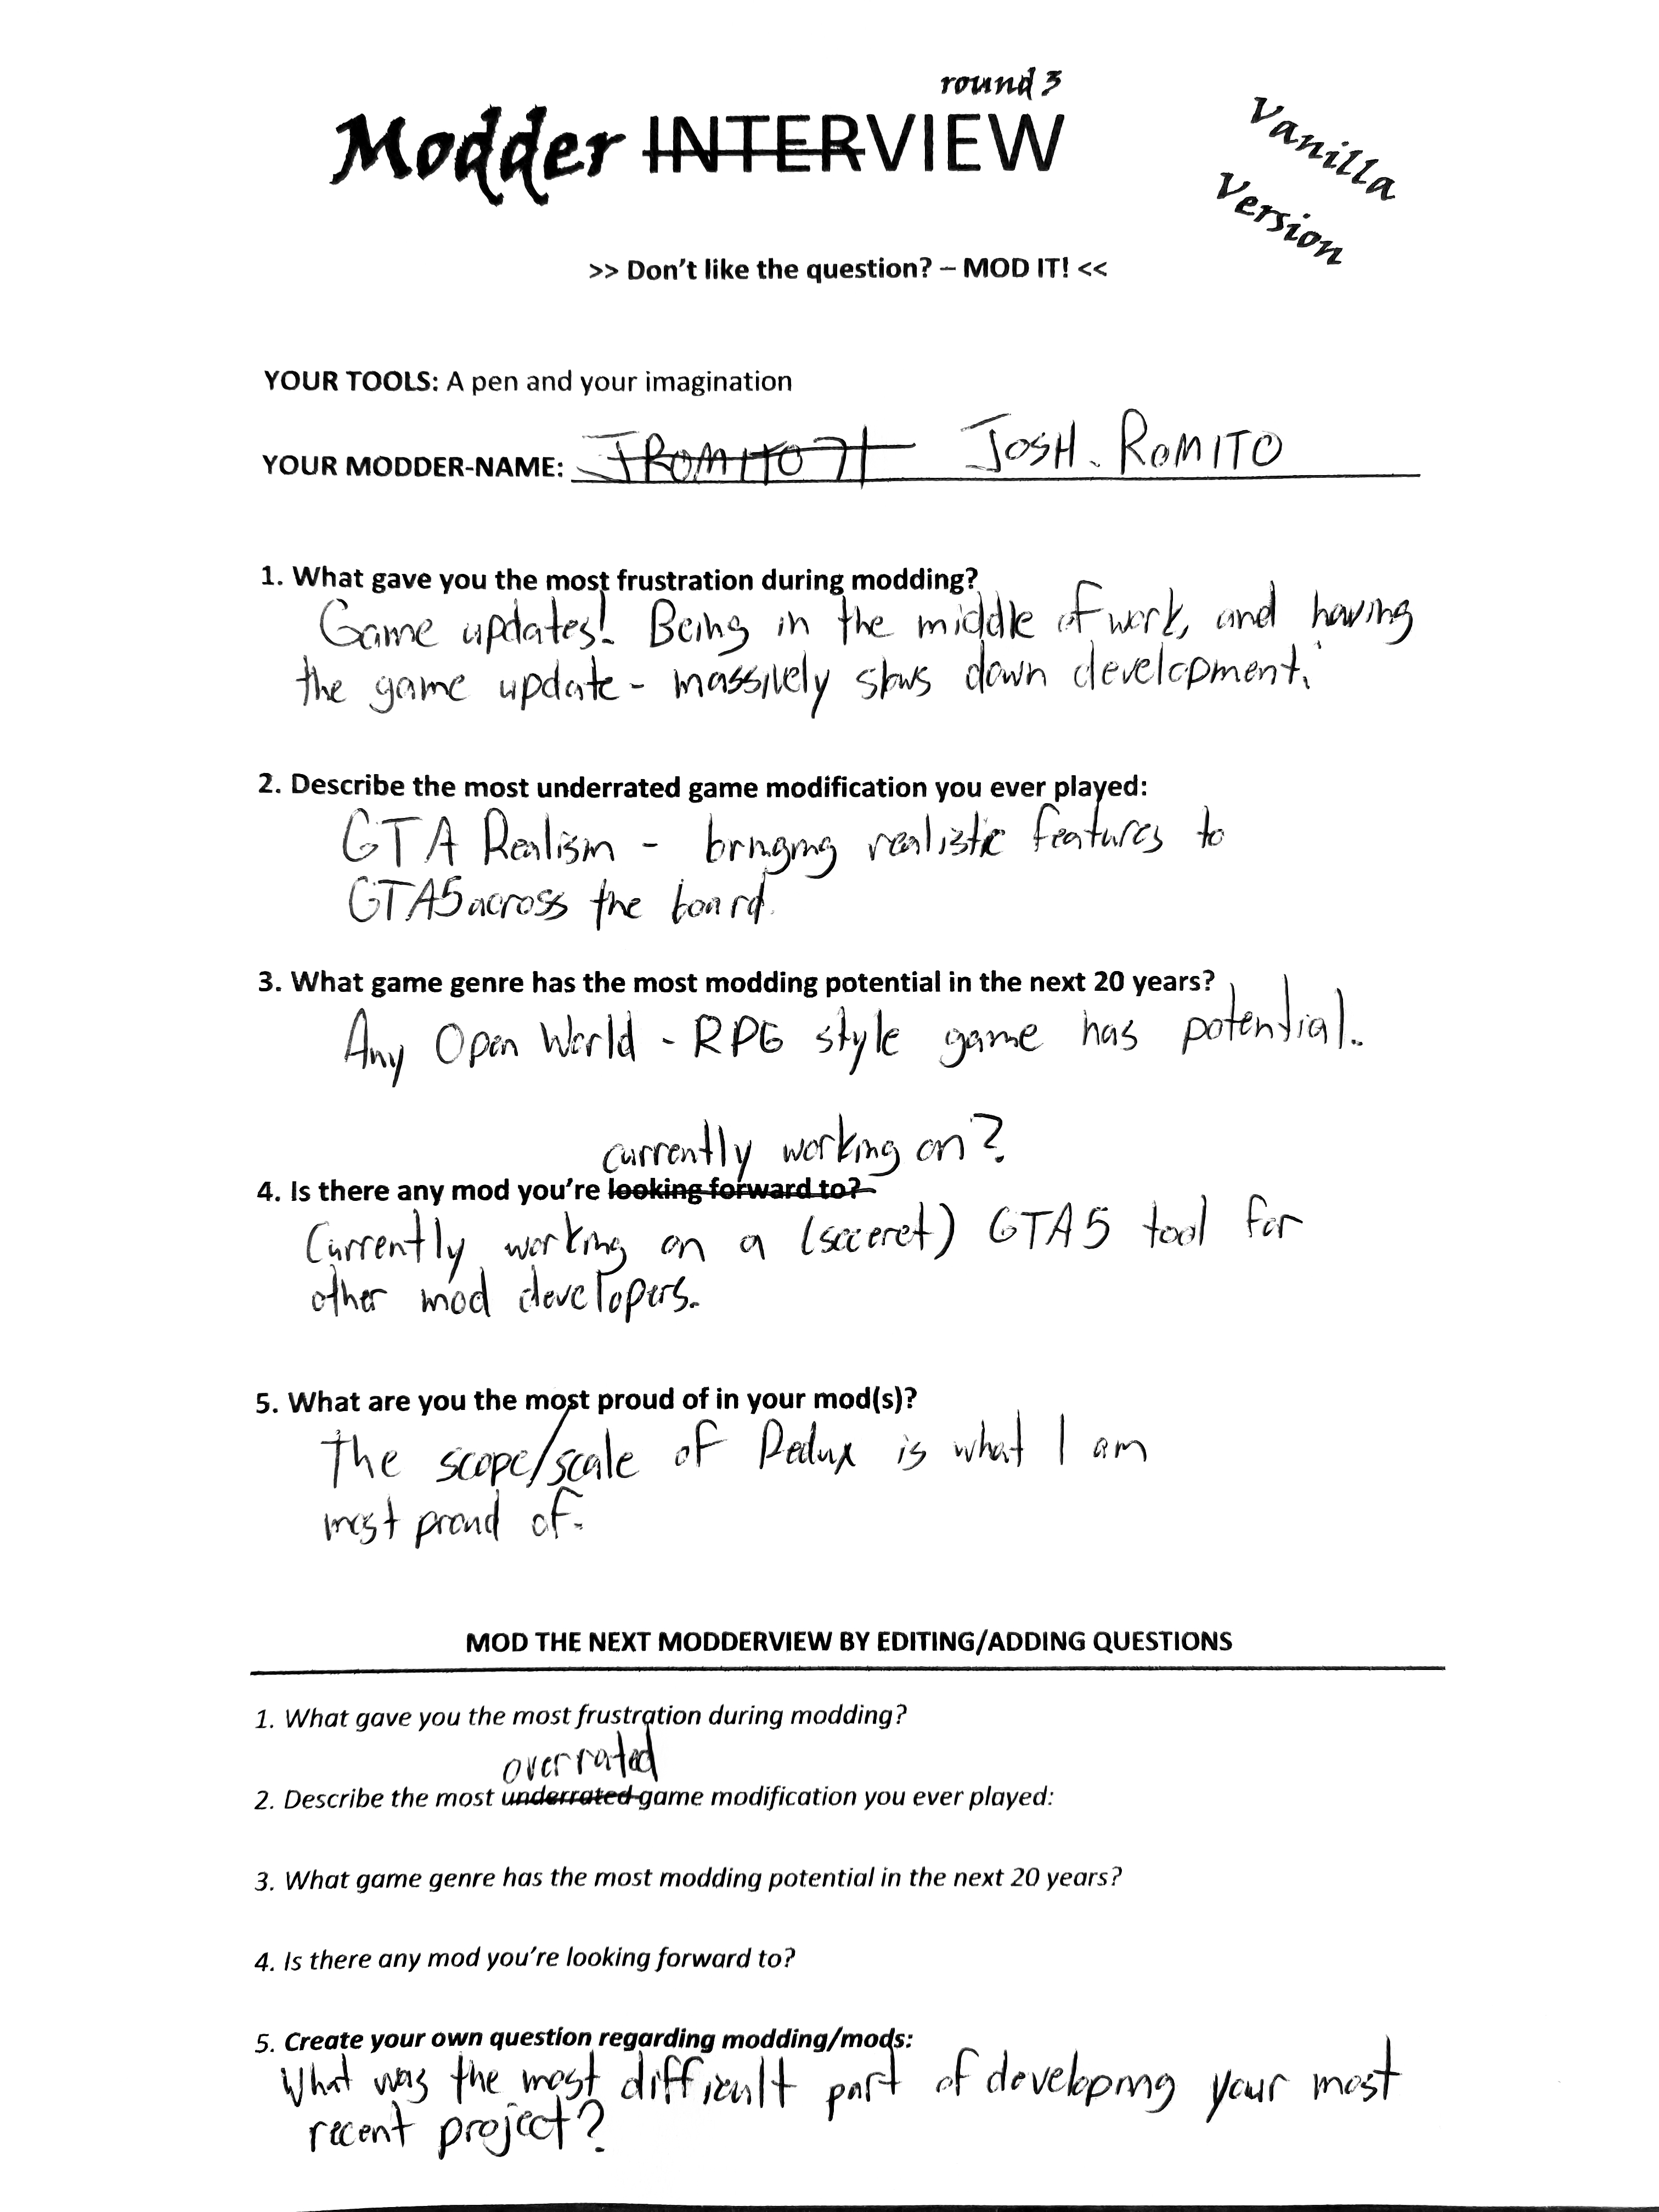 round 3
Modder INTERVIEW
Vanilla
Version
>> Don't like the question? – MOD IT! <<
YOUR TOOLS: A pen and your imagination
YOUR MODDER-NAME: JROMITO71 JOSH. ROMITO
1. What gave you the most frustration during modding?
Game updates! Being in the middle of work, and having
the game update - massively slows down development.
2. Describe the most underrated game modification you ever played:
GTA Realism - bringing realistic features to
GTA5 across the board.
3. What game genre has the most modding potential in the next 20 years?
Any Open World - RPG style game has potential.
currently working on?
4. Is there any mod you're looking forward to?
Currently working on a (sceeret) GTA5 tool for
other mod developers.
5. What are you the most proud of in your mod(s)?
The scope/scale of Redux is what I am
most proud of.
MOD THE NEXT MODDERVIEW BY EDITING/ADDING QUESTIONS
1. What gave you the most frustration during modding?
overrated
2. Describe the most underrated game modification you ever played:
3. What game genre has the most modding potential in the next 20 years?
4. Is there any mod you're looking forward to?
5. Create your own question regarding modding/mods:
What was the most difficult part of developing your most
recent project?